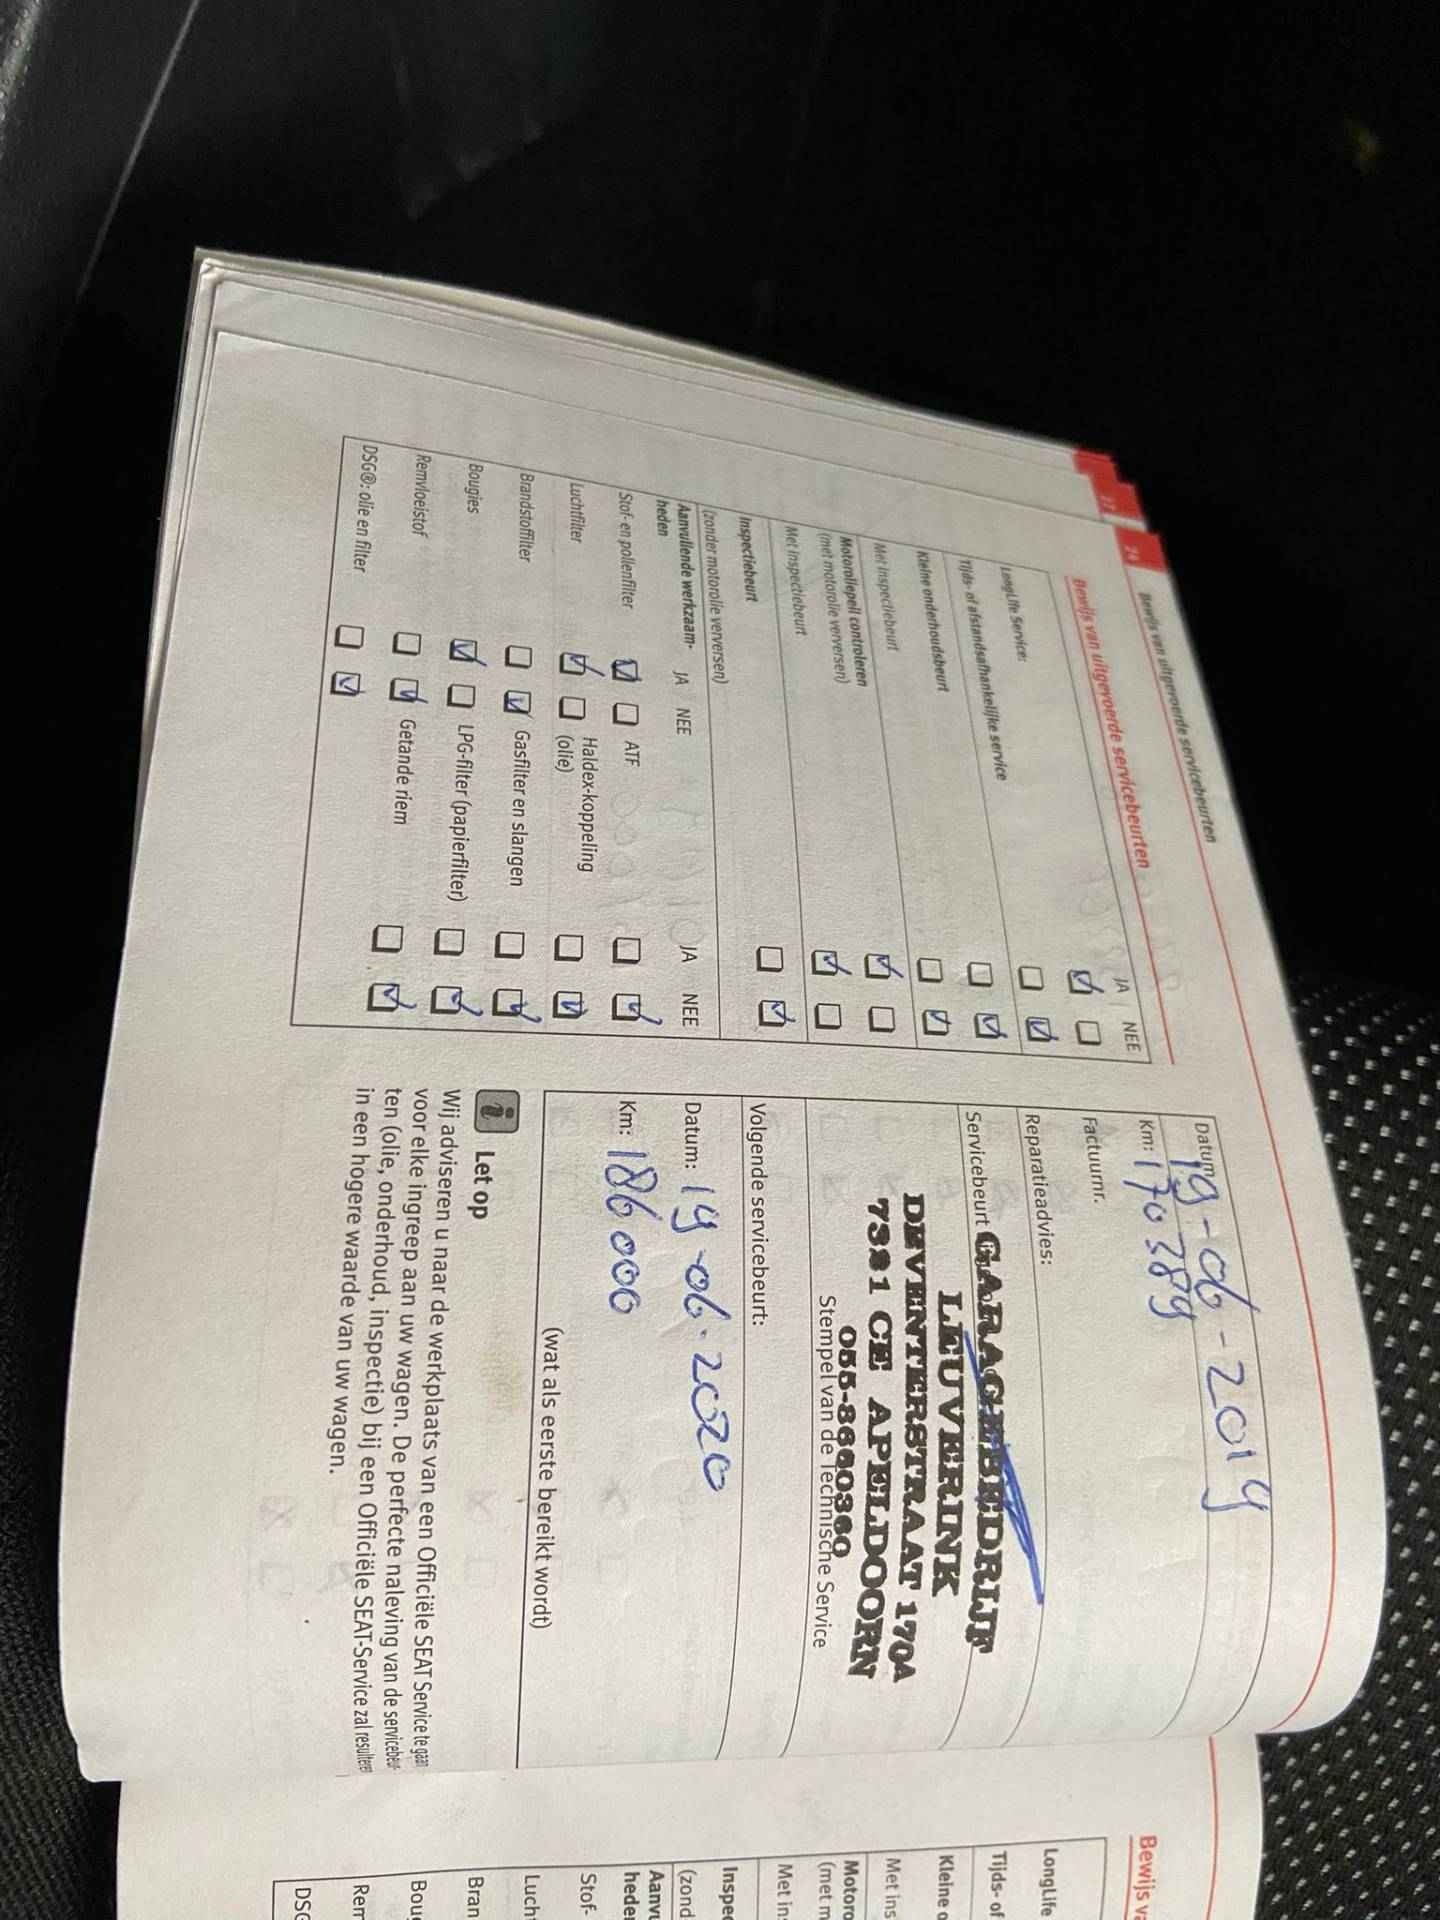 Bewijs van uitgevoerde servicebeurten
24
Bewijs van uitgevoerde servicebeurten
JA NEE
LongLife Service:
Tijds- of afstandsafhankelijke service
Kleine onderhoudsbeurt
Met inspectiebeurt
Motoroliepeil controleren
(met motorolie verversen)
Met inspectiebeurt
Inspectiebeurt
(zonder motorolie verversen)
Aanvullende werkzaam-
heden
JA NEE
JA NEE
Stof- en pollenfilter
ATF
Luchtfilter
Haldex-koppeling
(olie)
Brandstoffilter
Gasfilter en slangen
Bougies
LPG-filter (papierfilter)
Remvloeistof
Getande riem
DSG®: olie en filter
Datum
19-06-2019
Km: 170389
Factuurnr.
Reparatieadvies:
Servicebeurt
GARAGEBEDRIJF
LEUVERINK
DEVENTERSTRAAT 170A
7321 CE APELDOORN
055-3660360
Stempel van de Technische Service
Volgende servicebeurt:
Datum: 19-06-2020
Km: 186000
(wat als eerste bereikt wordt)
i Let op
Wij adviseren u naar de werkplaats van een Officiële SEAT Service te gaan
voor elke ingreep aan uw wagen. De perfecte naleving van de servicebeur-
ten (olie, onderhoud, inspectie) bij een Officiële SEAT-Service zal resulteren
in een hogere waarde van uw wagen.
Bewijs va
LongLife
Tijds- of
Kleine o
Met ins
Motoro
(met m
Met in
Inspec
(zond
Aanvu
heden
Stof-
Lucht
Bran
Boug
Rem
DSG